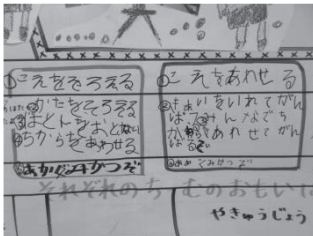 ①こえをそろえる
②かたをそろえる
③ばとんをおとさない
④ちからをあわせる
⑤あかぐみかつぞ
①こえをあわせる
②きあいをいれてがん
ばる
みんなで
ち
からをあわせてがん
ばるぞ
かつぞ
それぞれのち むのおもいは
やきゅうじょう